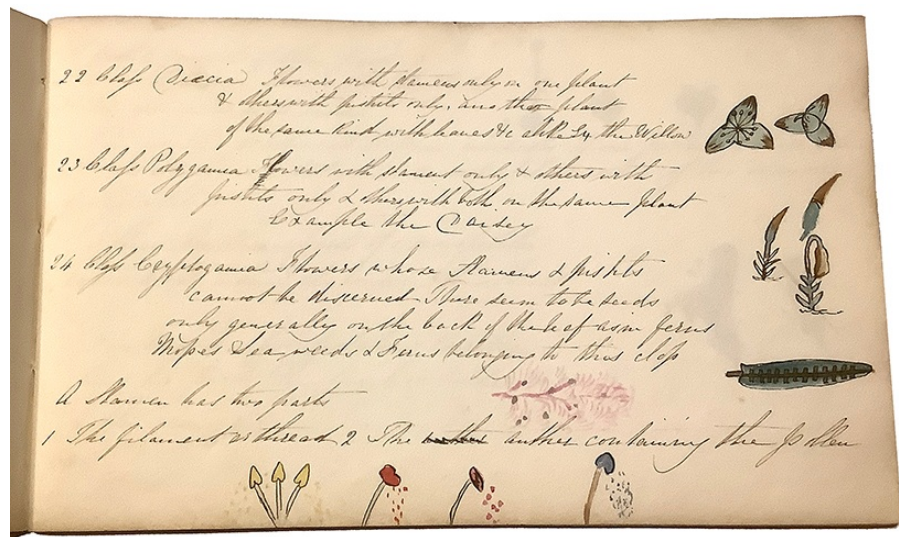 22 Class Diœcia Flowers with stamens only on one plant
& others with pistils only, another plant
of the same kind with leaves &c alike Ex the Willow
23 Class Polygamia Flowers with stamens only & others with
pistils only & others with both on the same plant
Example the Daisey
24 Class Cryptogamia Flowers whose Stamens & pistils
cannot be discerned There seem to be seeds
only generally on the back of the leaf as in ferns
Mosses Sea weeds & Ferns belonging to this class
A Stamen has two parts
1 The filament or thread 2 The anther containing the pollen